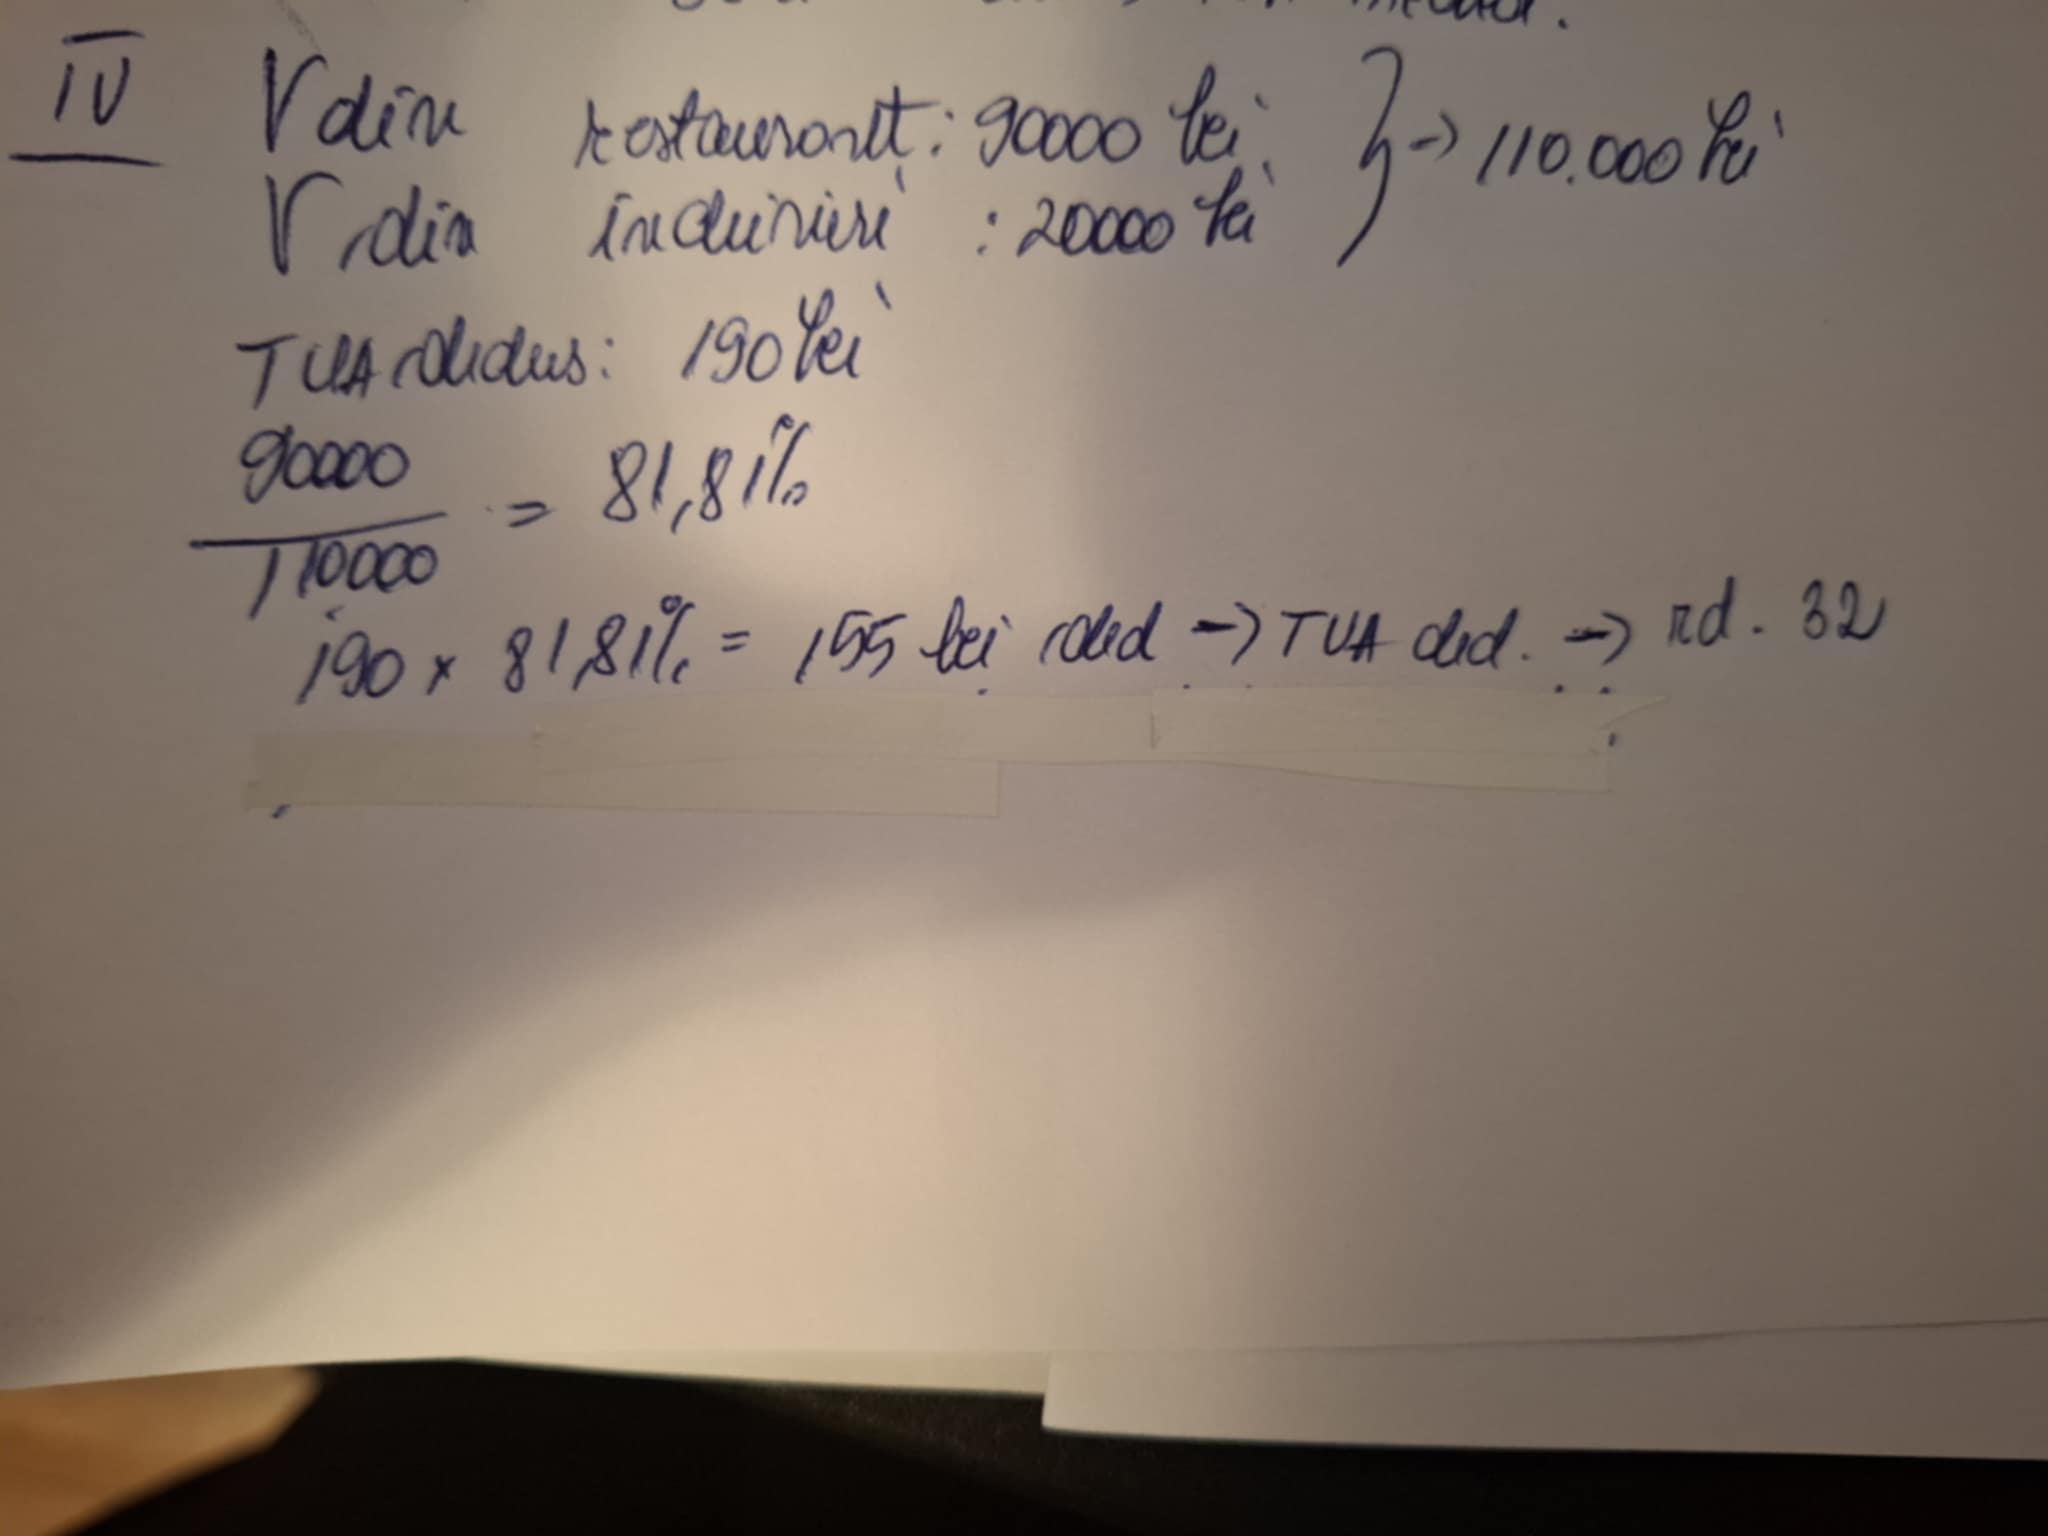 IV V din restaurant: 90000 lei
V din închirieri : 20000 lei } -> 110.000 lei
TVA dedus: 190 lei
90000
110000 = 81,81%
190 x 81,81% = 155 lei ded -> TVA ded. -> rd. 32